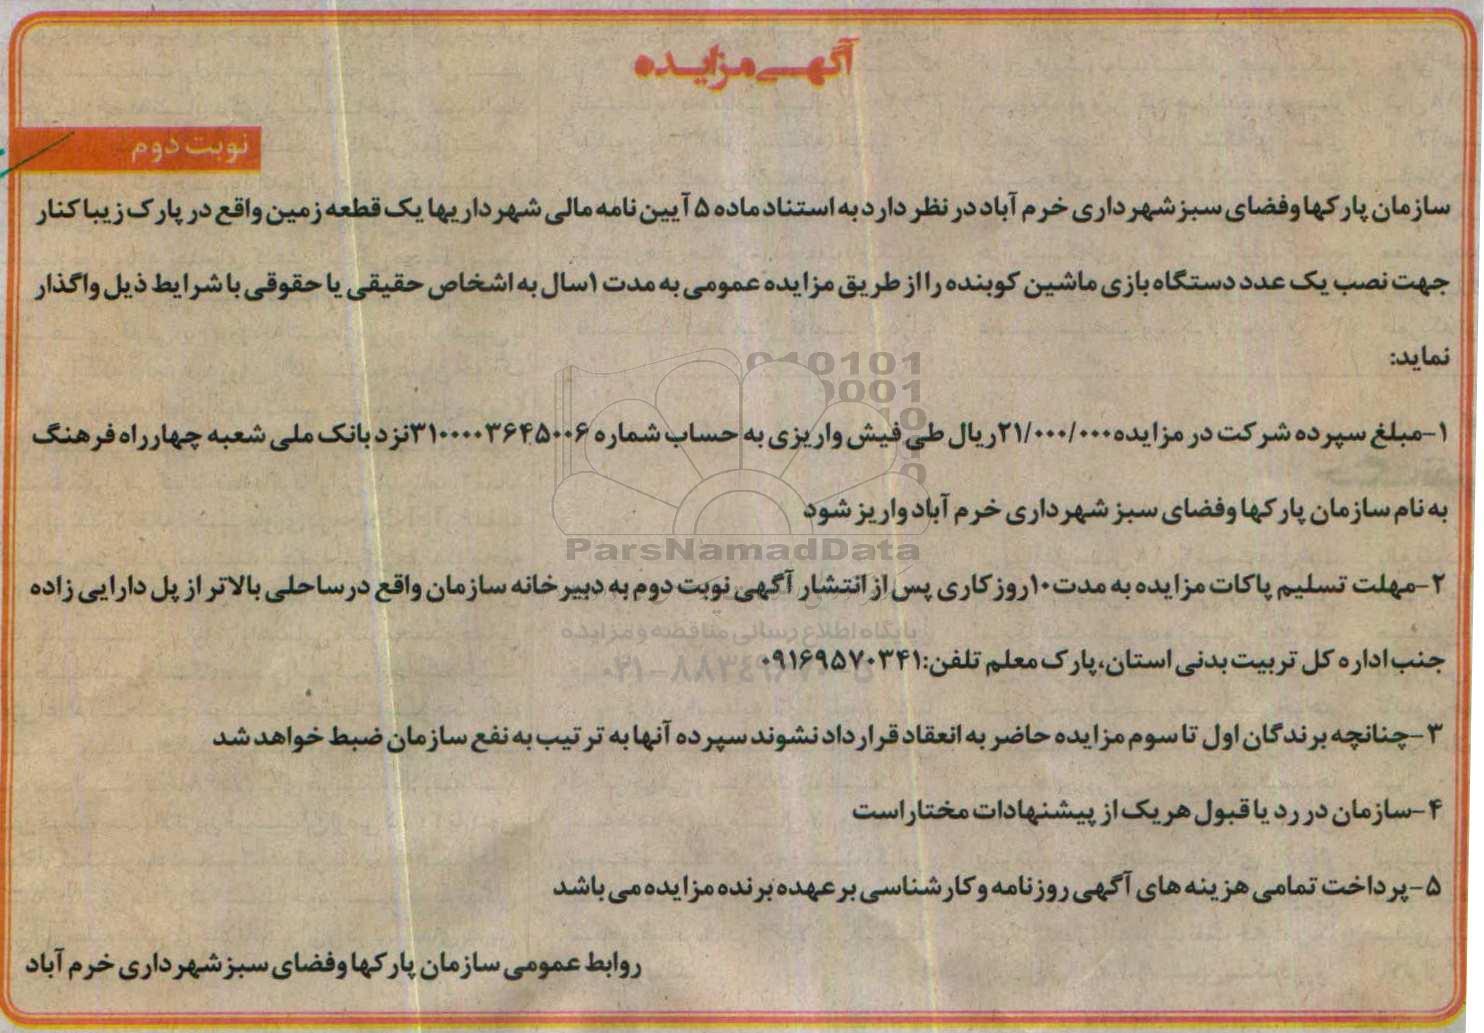 آگهی مزایده
نوبت دوم
سازمان پارکها وفضای سبز شهرداری خرم آباد در نظر دارد به استناد ماده ۵ آیین نامه مالی شهرداریها یک قطعه زمین واقع در پارک زیبا کنار
جهت نصب یک عدد دستگاه بازی ماشین کوبنده را از طریق مزایده عمومی به مدت ۱سال به اشخاص حقیقی یا حقوقی با شرایط ذیل واگذار
نماید:
010101
0001
10
ParsNamadData
۱-مبلغ سپرده شرکت در مزایده۲۱/۰۰۰/۰۰۰ریال طی فیش واریزی به حساب شماره ۳۱۰۰۰۰۳۶۴۵۰۰۶نزد بانک ملی شعبه چهارراه فرهنگ
به نام سازمان پارکها وفضای سبز شهرداری خرم آباد واریز شود
۲-مهلت تسلیم پاکات مزایده به مدت۱۰روز کاری پس از انتشار آگهی نوبت دوم به دبیرخانه سازمان واقع درساحلی بالاتر از پل دارایی زاده
پایگاه اطلاع رسانی مناقصه و مزایده
جنب اداره کل تربیت بدنی استان،پارک معلم تلفن:۰۹۱۶۹۵۷۰۳۴۱
۳-چنانچه برندگان اول تا سوم مزایده حاضر به انعقاد قرارداد نشوند سپرده آنها به ترتیب به نفع سازمان ضبط خواهد شد
۴-سازمان در رد یا قبول هر یک از پیشنهادات مختار است
۵-پرداخت تمامی هزینه های آگهی روزنامه و کارشناسی بر عهده برنده مزایده می باشد
روابط عمومی سازمان پارکها وفضای سبز شهرداری خرم آباد